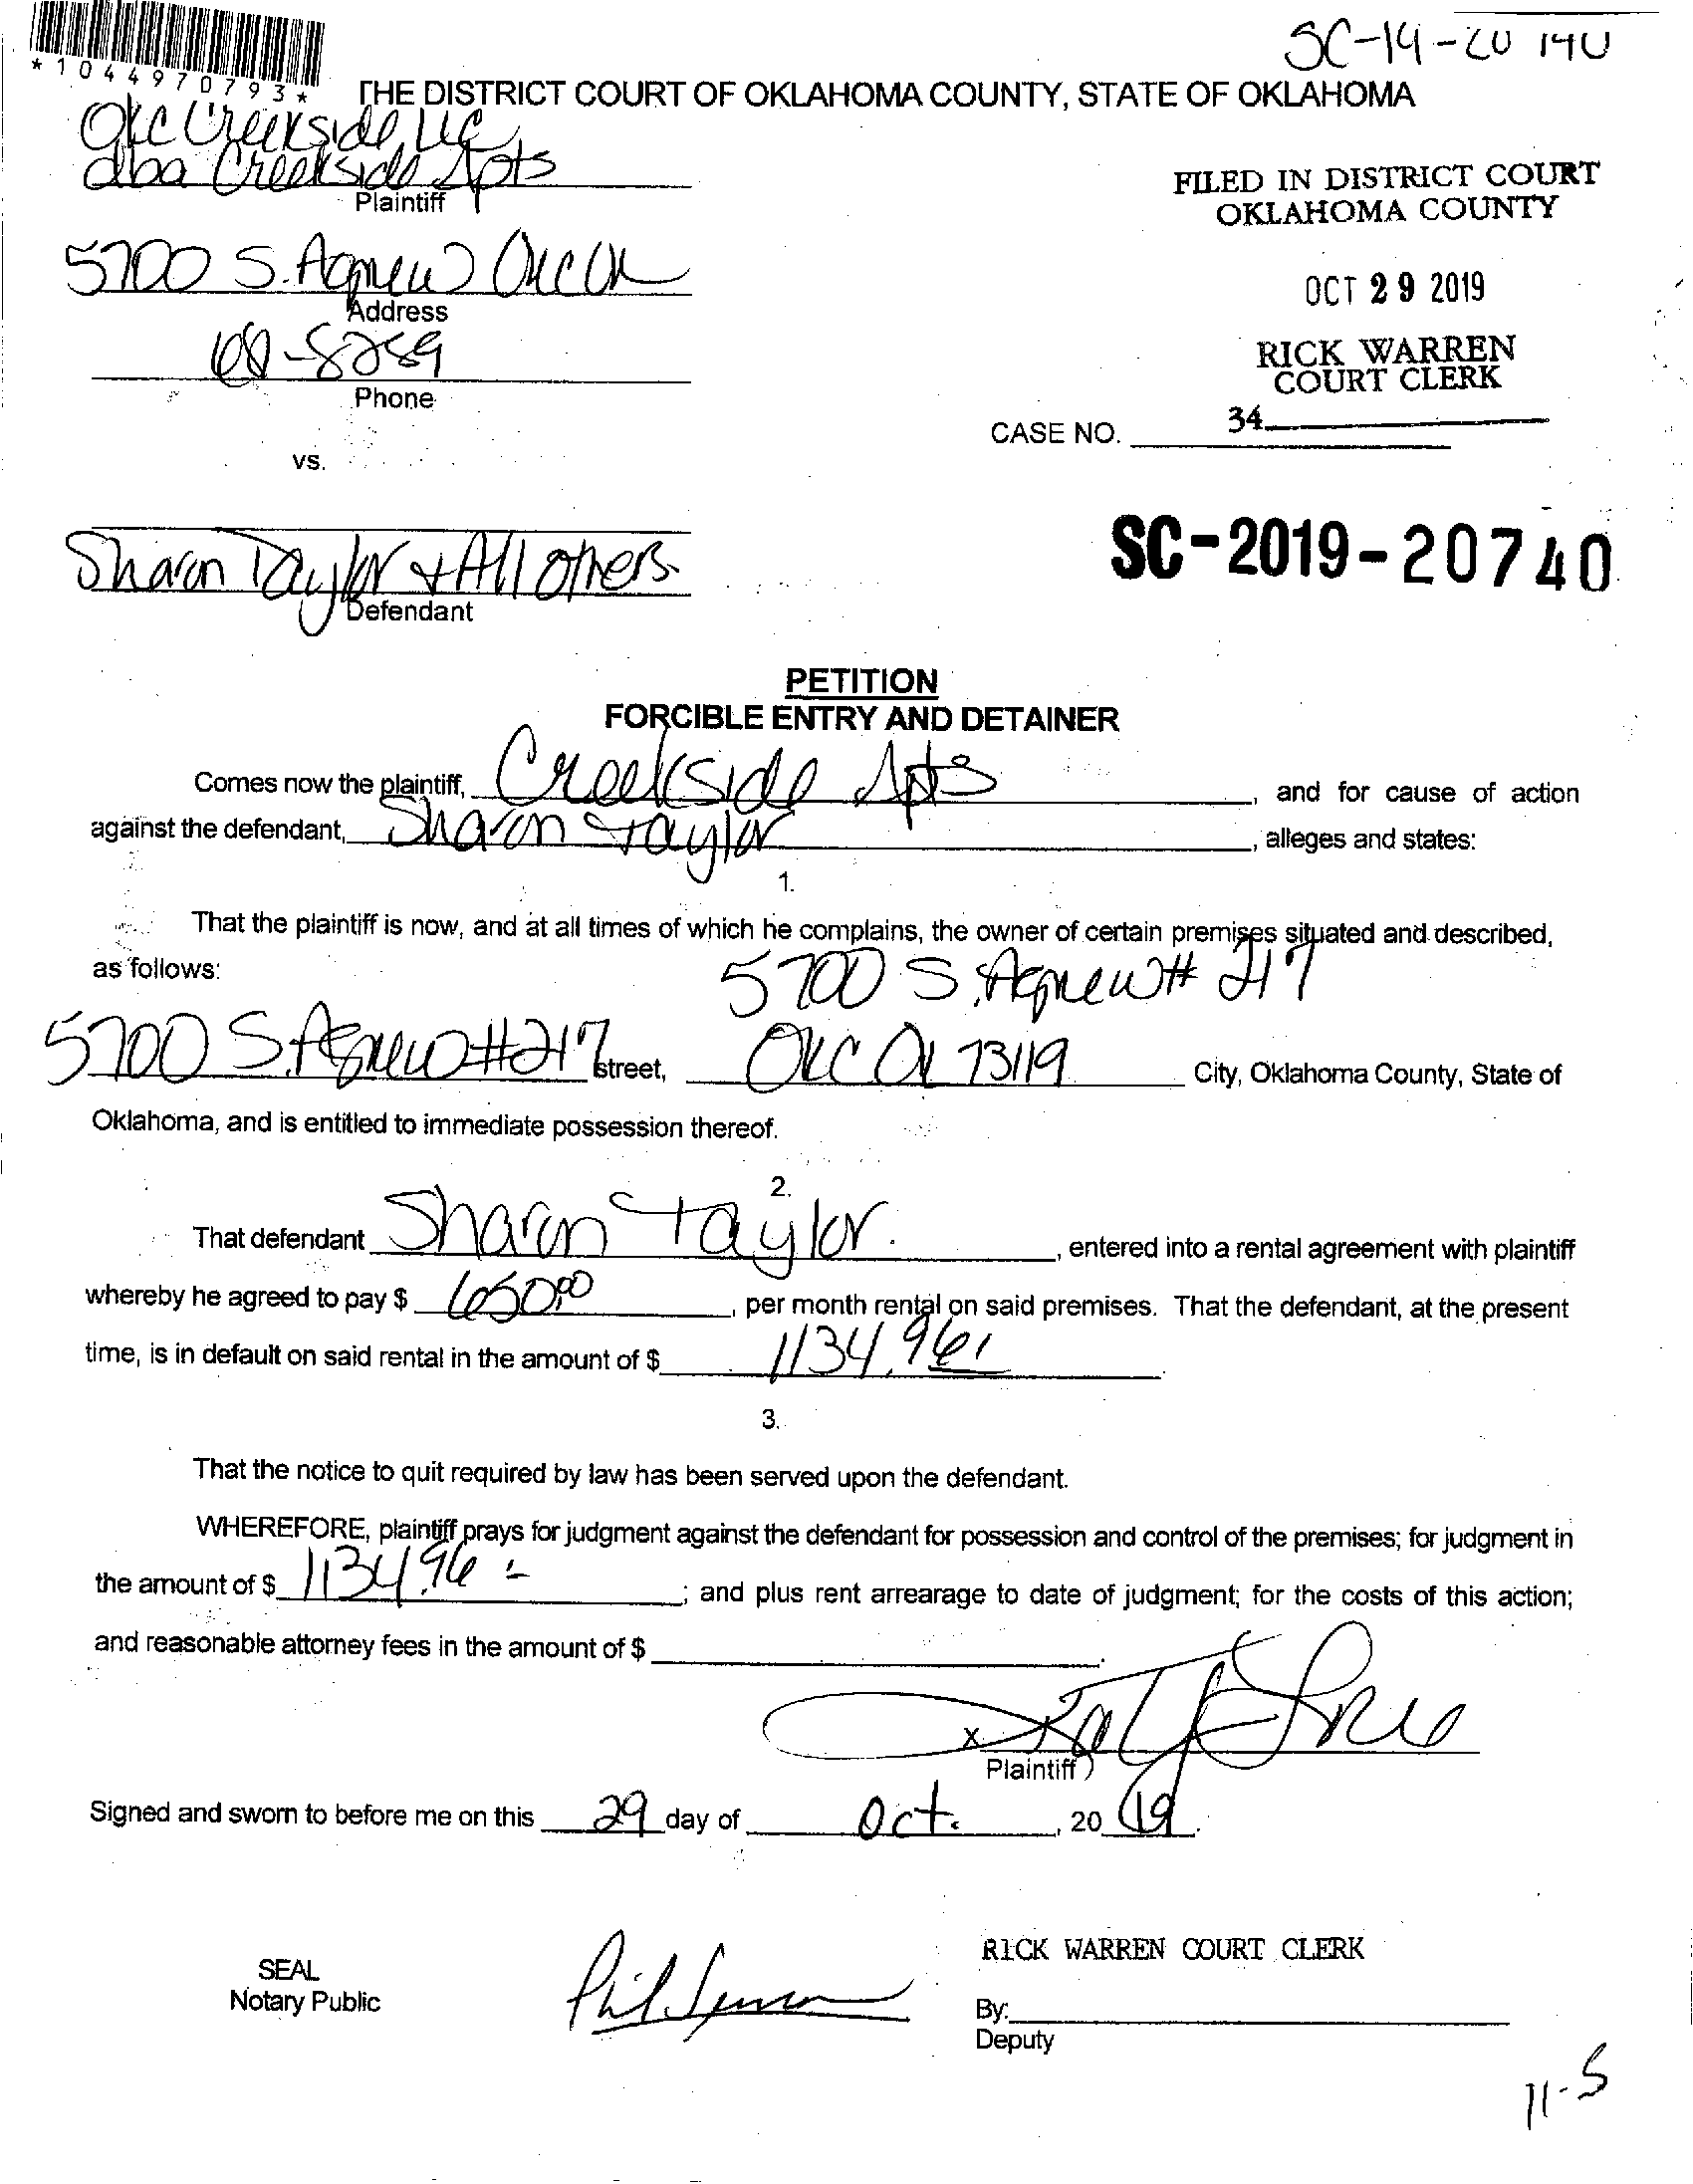 SC-19-20740
*1044970793*
THE DISTRICT COURT OF OKLAHOMA COUNTY, STATE OF OKLAHOMA
OKC Creekside, LLC
dba Creekside Apts
Plaintiff
FILED IN DISTRICT COURT
OKLAHOMA COUNTY
5700 S. Agnew OKC OK
Address
OCT 29 2019
-8259
Phone
RICK WARREN
COURT CLERK
34
CASE NO.
vs.
Sharon Taylor + All others
Defendant
SC-2019-20740
PETITION
FORCIBLE ENTRY AND DETAINER
Comes now the plaintiff, Creekside Apts, and for cause of action
against the defendant, Sharon Taylor, alleges and states:
1.
That the plaintiff is now, and at all times of which he complains, the owner of certain premises situated and described,
as follows: 5700 S. Agnew # 217
5700 S. Agnew #217 street, OKC OK 73119 City, Oklahoma County, State of
Oklahoma, and is entitled to immediate possession thereof.
2.
That defendant Sharon Taylor, entered into a rental agreement with plaintiff
whereby he agreed to pay $ 650.00, per month rental on said premises. That the defendant, at the present
time, is in default on said rental in the amount of $ 1134.96
3.
That the notice to quit required by law has been served upon the defendant.
WHEREFORE, plaintiff prays for judgment against the defendant for possession and control of the premises; for judgment in
the amount of $ 1134.96; and plus rent arrearage to date of judgment; for the costs of this action;
and reasonable attorney fees in the amount of $
X
Plaintiff
Signed and sworn to before me on this 29 day of Oct., 2019.
RICK WARREN COURT CLERK
SEAL
Notary Public
By:
Deputy
11-5